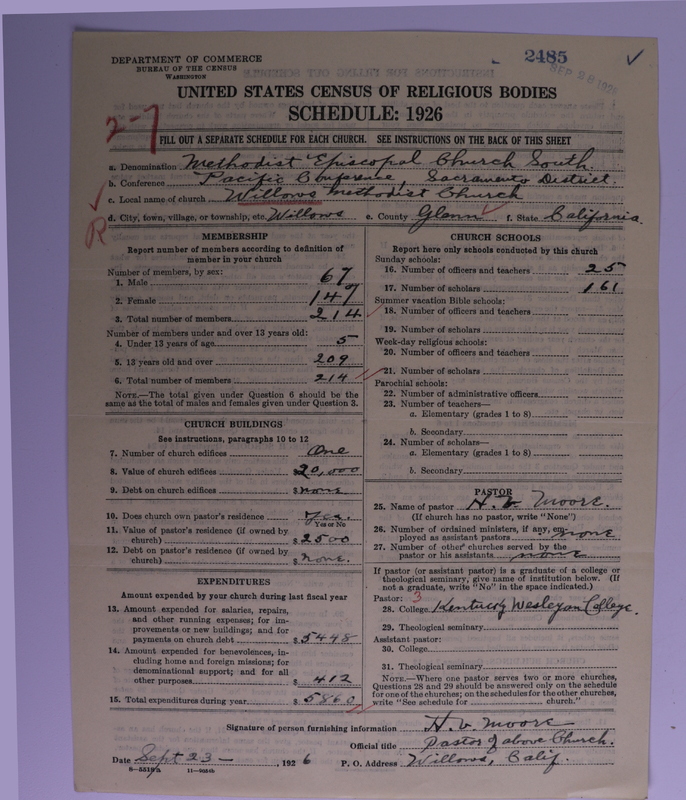 DEPARTMENT OF COMMERCE
BUREAU OF THE CENSUS
WASHINGTON
2485
SEP 28 1926
UNITED STATES CENSUS OF RELIGIOUS BODIES
SCHEDULE: 1926
2-7
FILL OUT A SEPARATE SCHEDULE FOR EACH CHURCH. SEE INSTRUCTIONS ON THE BACK OF THIS SHEET
a. Denomination Methodist Episcopal Church South.
b. Conference Pacific Conference, Sacramento District.
c. Local name of church Willows Methodist Church
d. City, town, village, or township, etc. Willows e. County Glenn f. State California.
R
MEMBERSHIP
Report number of members according to definition of
member in your church
Number of members, by sex:
1. Male 67
2. Female 147
3. Total number of members 214
Number of members under and over 13 years old:
4. Under 13 years of age 5
5. 13 years old and over 209
6. Total number of members 214
NOTE.—The total given under Question 6 should be
same as the total of males and females given under Question 3.
CHURCH BUILDINGS
See instructions, paragraphs 10 to 12
7. Number of church edifices One
8. Value of church edifices $20,000
9. Debt on church edifices $none.
10. Does church own pastor's residence Yes.
Yes or No
11. Value of pastor's residence (if owned by
church) $2500
12. Debt on pastor's residence (if owned by
church) $none.
EXPENDITURES
Amount expended by your church during last fiscal year
13. Amount expended for salaries, repairs,
and other running expenses; for im-
provements or new buildings; and for
payments on church debt $5448
14. Amount expended for benevolences, in-
cluding home and foreign missions; for
denominational support; and for all
other purposes $412
15. Total expenditures during year $5860
CHURCH SCHOOLS
Report here only schools conducted by this church
Sunday schools:
16. Number of officers and teachers 25
17. Number of scholars 161
Summer vacation Bible schools:
18. Number of officers and teachers
19. Number of scholars
Week-day religious schools:
20. Number of officers and teachers
21. Number of scholars
Parochial schools:
22. Number of administrative officers
23. Number of teachers—
a. Elementary (grades 1 to 8)
b. Secondary
24. Number of scholars—
a. Elementary (grades 1 to 8)
b. Secondary
PASTOR
25. Name of pastor H. V. Moore.
(If church has no pastor, write "None")
26. Number of ordained ministers, if any, em-
ployed as assistant pastors none
27. Number of other churches served by the
pastor or his assistants none
If pastor (or assistant pastor) is a graduate of a college or
theological seminary, give name of institution below. (If
not a graduate, write "No" in the space indicated.)
Pastor: 3
28. College Kentucky Wesleyan College.
29. Theological seminary
Assistant pastor:
30. College
31. Theological seminary
NOTE.—Where one pastor serves two or more churches,
Questions 28 and 29 should be answered only on the schedule
for one of the churches; on the schedules for the other churches,
write "See schedule for church."
Signature of person furnishing information H. V. Moore
Official title Pastor of above Church.
Date Sept 23 —, 1926 P. O. Address Willows, Calif.